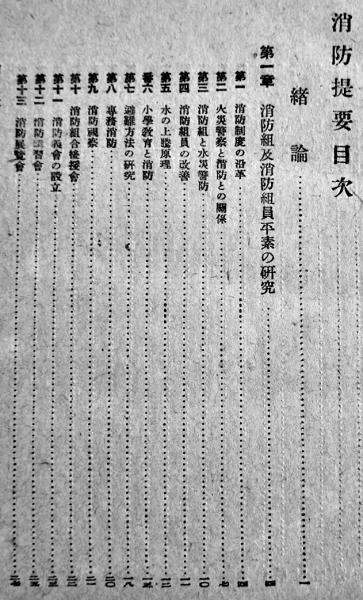 消防提要目次
緒論……一
第一章 消防組及消防組員平素の研究……四
第一 消防制度の沿革……四
第二 火災警察と消防との關係……七
第三 消防組と水災警防……一〇
第四 消防組員の改善……一一
第五 水の上騰原理……一二
番六 小學教育と消防……一五
第七 避難方法の研究……一八
第八 專務消防……二〇
第九 消防視察……二一
第十 消防組合後援會……二三
第十一 消防義會の設立……二三
第十二 消防講習會……二五
第十三 消防展覽會……二七